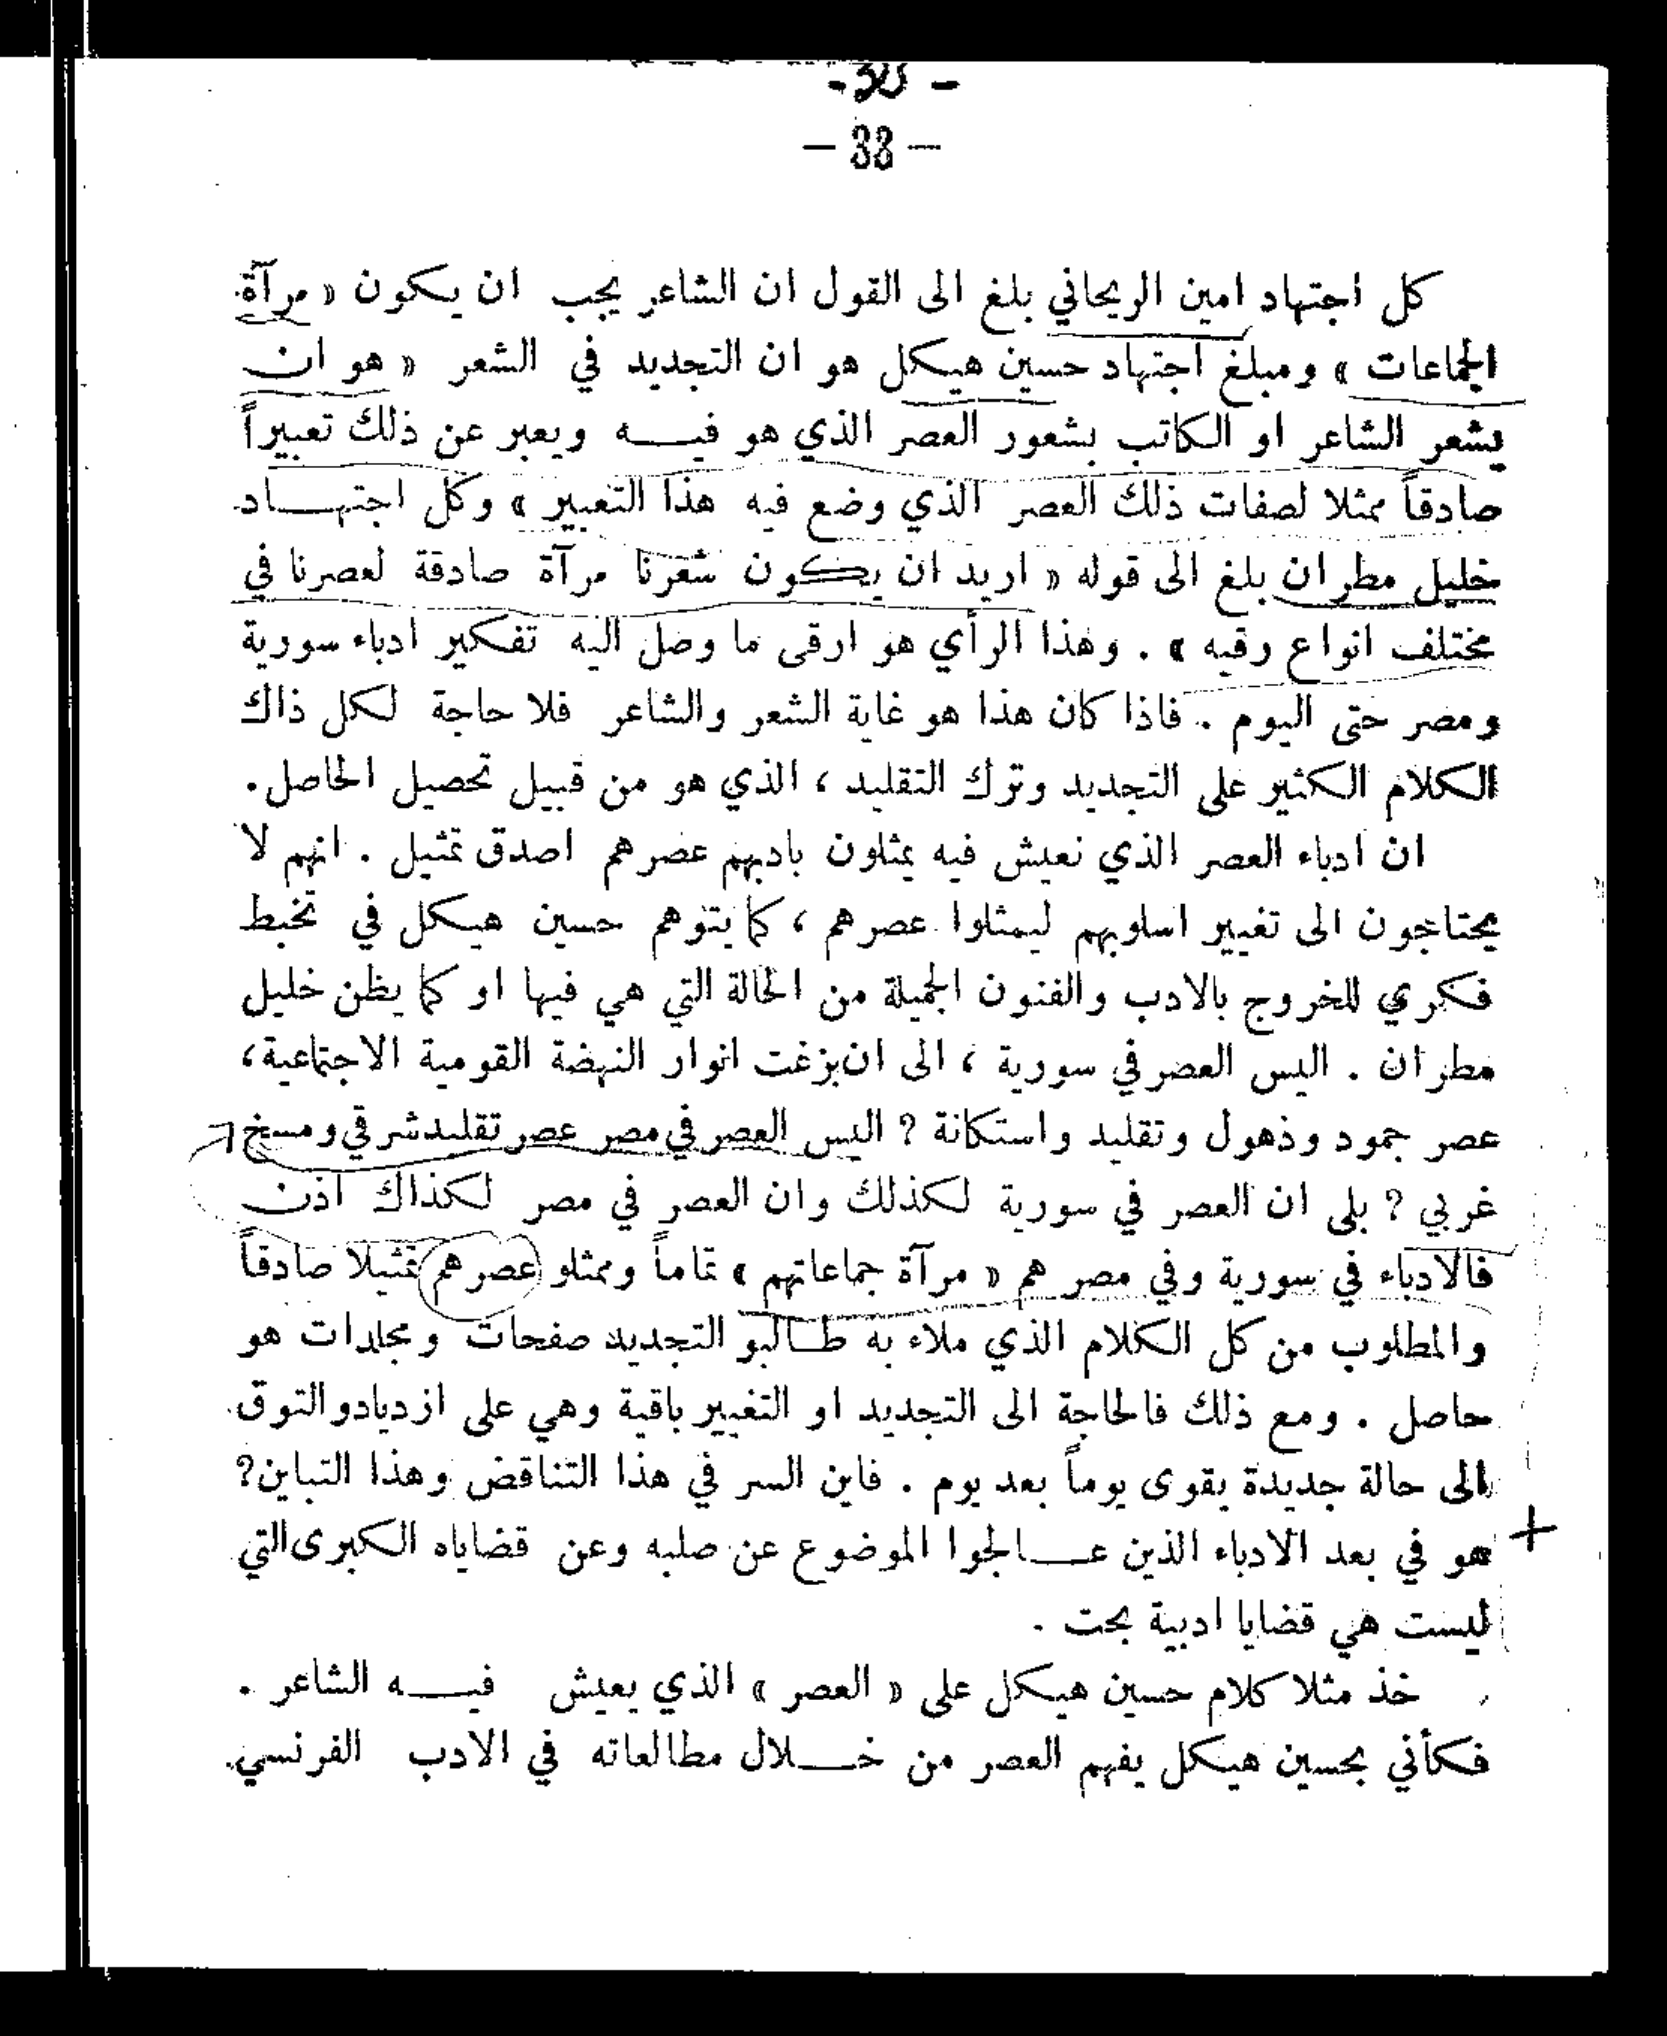 — 33 —
كل اجتهاد امين الريحاني بلغ الى القول ان الشاعر يجب ان يكون « مرآة
الجماعات » ومبلغ اجتهاد حسين هيكل هو ان التجديد في الشعر « هو ان
يشعر الشاعر او الكاتب بشعور العصر الذي هو فيـــه ويعبر عن ذلك تعبيراً
صادقاً ممثلا لصفات ذلك العصر الذي وضع فيه هذا التعبير » وكل اجتهـــاد
خليل مطران بلغ الى قوله « اريد ان يكون شعرنا مرآة صادقة لعصرنا في
مختلف انواع رقيه » . وهذا الرأي هو ارقى ما وصل اليه تفكير ادباء سورية
ومصر حتى اليوم . فاذا كان هذا هو غاية الشعر والشاعر فلا حاجة لكل ذاك
الكلام الكثير على التجديد وترك التقليد ، الذي هو من قبيل تحصيل الحاصل .
ان ادباء العصر الذي نعيش فيه يمثلون بادبهم عصرهم اصدق تمثيل . انهم لا
يحتاجون الى تغيير اسلوبهم ليمثلوا عصرهم ، كما يتوهم حسين هيكل في تخبط
فكري للخروج بالادب والفنون الجميلة من الحالة التي هي فيها او كما يظن خليل
مطران . اليس العصر في سورية ، الى ان بزغت انوار النهضة القومية الاجتماعية ،
عصر جمود وذهول وتقليد واستكانة ؟ اليس العصر في مصر عصر تقليد شرقي ومسخ
غربي ؟ بلى ان العصر في سورية لكذلك وان العصر في مصر لكذاك اذن
فالادباء في سورية وفي مصر هم « مرآة جماعاتهم » تماماً وممثلو عصرهم تمثيلا صادقاً
والمطلوب من كل الكلام الذي ملاء به طـالبو التجديد صفحات ومجلدات هو
حاصل . ومع ذلك فالحاجة الى التجديد او التغيير باقية وهي على ازدياد والتوق
الى حالة جديدة يقوى يوماً بعد يوم . فاين السر في هذا التناقض وهذا التباين ؟
هو في بعد الادباء الذين عـــالجوا الموضوع عن صلبه وعن قضاياه الكبرى التي
ليست هي قضايا ادبية بحت .
خذ مثلا كلام حسين هيكل على « العصر » الذي يعيش فيـــه الشاعر .
فكأني بحسين هيكل يفهم العصر من خـــلال مطالعاته في الادب الفرنسي